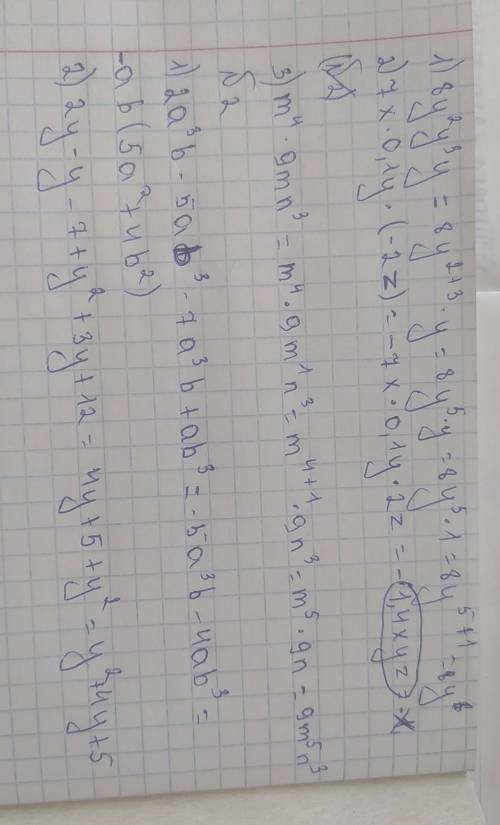 1) 8y²y³y = 8y²⁺³·y = 8y⁵·y = 8y⁵·1 = 8y⁵⁺¹ = 8y⁶
2) 7x·0,1y·(-2z) = -7x·0,1y·2z = -1,4xyz
(№2)
3) m⁴·9mn³ = m⁴·9m¹n³ = m⁴⁺¹·9n³ = m⁵·9n = 9m⁵n³
№2
1) 2a³b - 5ab³ - 7a³b + ab³ = -5a³b - 4ab³ =
-ab(5a²+4b²)
2) 2y - y - 7 + y² + 3y + 12 = 4y + 5 + y² = y² + 4y + 5